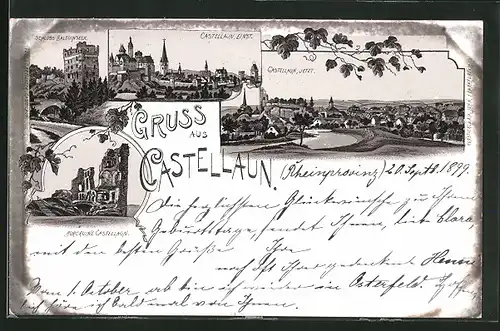 SCHLOSS BALDUINSECK.
CASTELLAUN, EINST.
CASTELLAUN, JETZT.
GRUSS
AUS
CASTELLAUN.
BURGRUINE CASTELLAUN.
(Rheinprovinz) 20. Sept. 1899.
Die herzlichsten Glückwünsche zu Ihrem
Geburtstage sendet Ihnen, liebe Clara,
mit den besten Grüßen Ihre
noch oft Ihrer gedenkende
Vom 1. October ab bin ich wieder in Osterfeld. Hoffent-
lich höre ich bald mal von Ihnen.